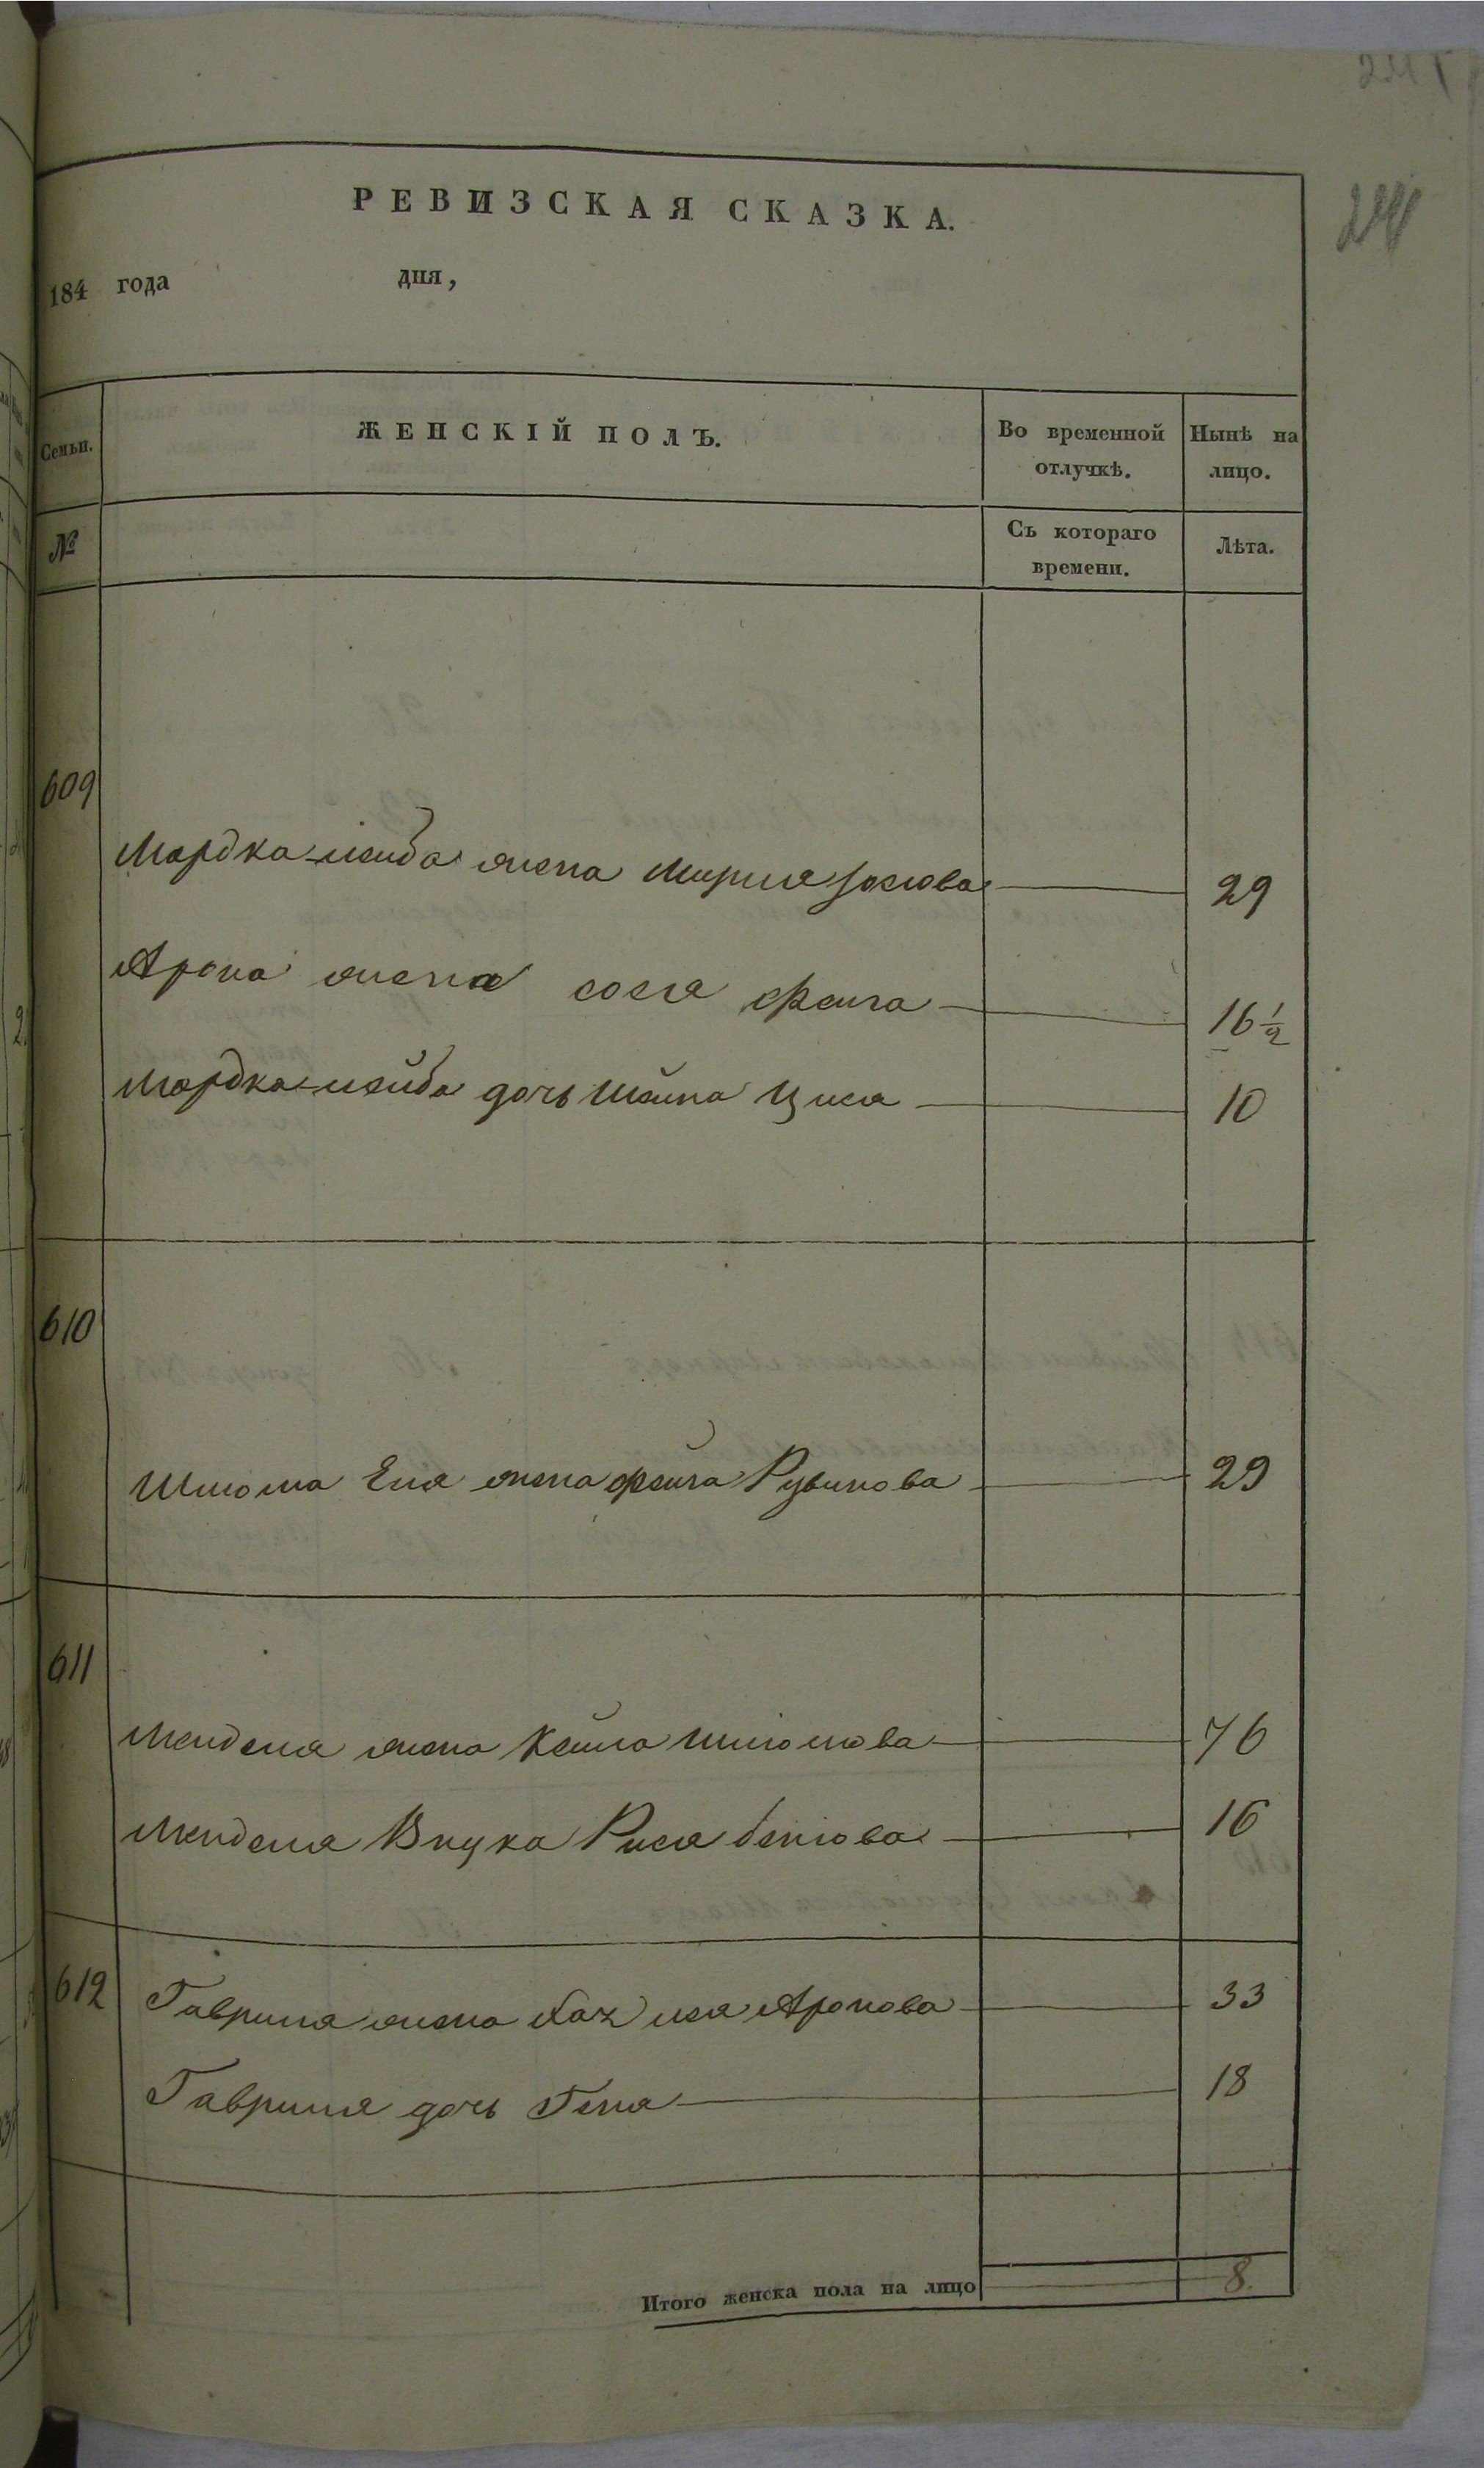 РЕВИЗСКАЯ СКАЗКА.
184 года дня,
Семьи. ЖЕНСКІЙ ПОЛЪ. Во временной отлучкѣ. Нынѣ на лицо.
№ Съ котораго времени. Лѣта.
609
Мордка-лейба жена Мирля Іослова 29
Арона жена Сося Фейга 16 1/2
Мордка-лейба дочь Шейна Цися 10
610
Шлома Еля жена Фейга Рувинова 29
611
Менделя жена Кейла Шломова 76
Менделя Внука Рися 16
612 Гаврила жена Ароновa 33
Гаврила дочь Геня 18
Итого женска пола на лицо 8.